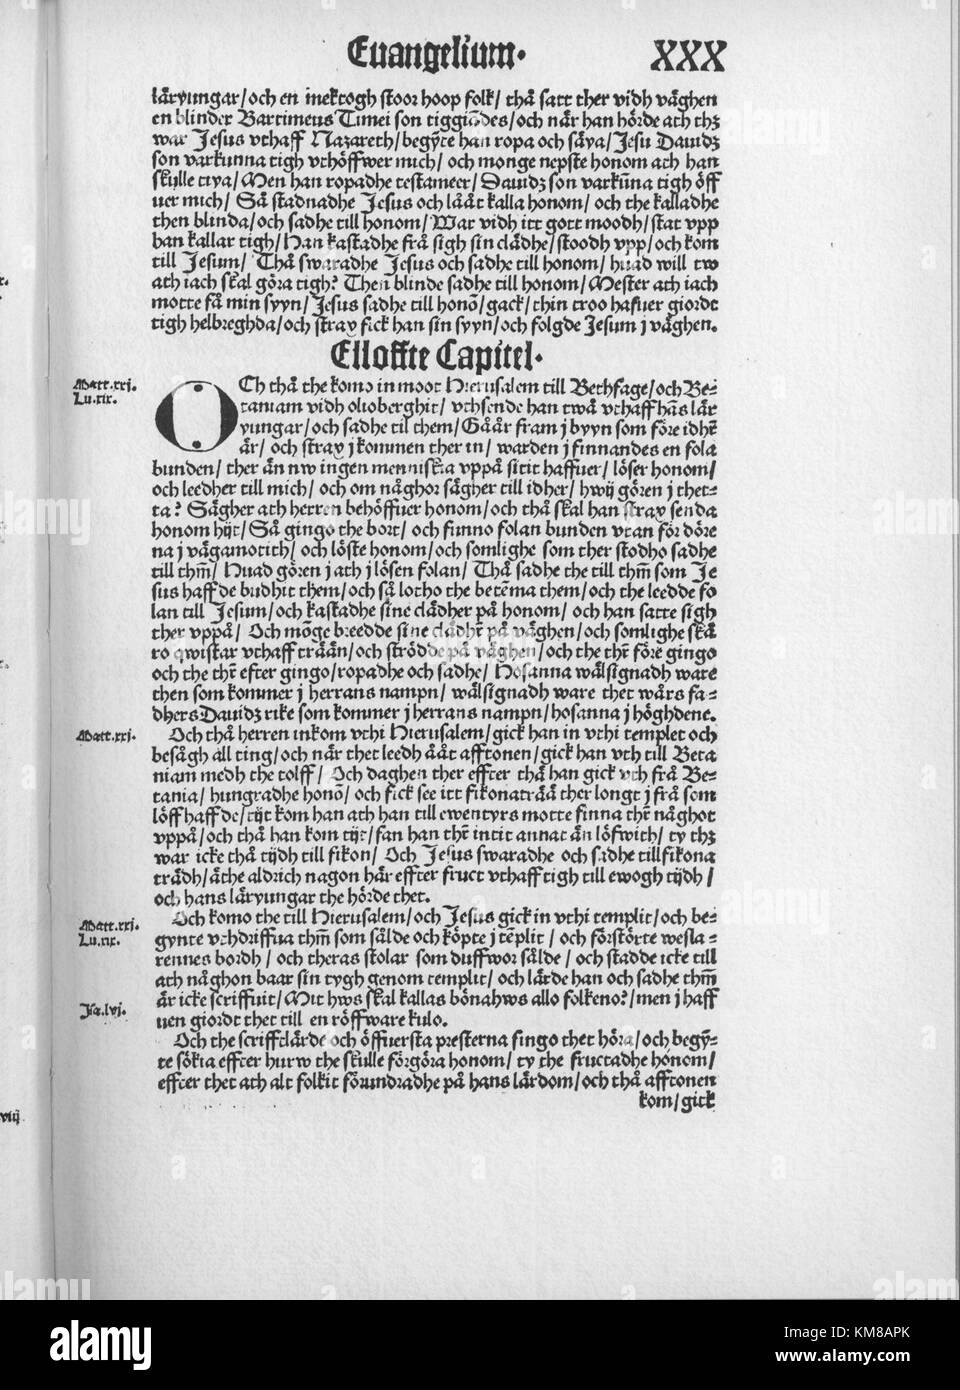 Euangelium.
XXX
läryungar/och en mektogh stoor hoop folk/ thå satt ther vidh väghen
en blinder Bartimeus Timei son tiggiādes/och när han hörde ath thz
war Jesus vthaff Nazareth/begyte han ropa och säya/Jesu Dauidz
son varkunna tigh vthöffwer mich/ och monge nepste honom ath han
skulle tiya/Men han ropadhe testameer/Dauidz son varkūna tigh öff
uer mich/ Så stadnadhe Jesus och läät kalla honom/och the kalladhe
then blinda/och sadhe till honom/War vidh itt gott moodh/stat vpp
han kallar tigh/Han kastadhe frå sigh sin clädhe/stoodh vpp/och kom
till Jesum/ Thå swaradhe Jesus och sadhe till honom/huad will tw
ath iach skal göra tigh? Then blinde sadhe till honom/Mester ath iach
motte få min syyn/Jesus sadhe till honō/gack/thin troo hafuer giordt
tigh helbreghda/och strax fick han sin syyn/och folgde Jesum j väghen.
Elloffte Capitel.
Matt.xxj.
Lu.xix.
OCh thå the komo in moot Hierusalem till Bethfage/och Be-
taniam vidh olioberghit/ vthsende han twå vthaff hās lär
yungar/och sadhe til them/Gåår fram j byyn som före idhr̄
är/ och strax j kommen ther in/ warden j finnandes en fola
bunden/ ther än nw ingen menniskia vppå sitit haffuer/löser honom/
och leedher till mich/ och om någhor sägher till idher/hwij gören j thet-
ta? Sägher ath herren behöffuer honom/och thå skal han strax senda
honom hijt/Så gingo the bort/och funno folan bunden vtan för döre
na j vägamotith/ och löste honom/och somlighe som ther stodho sadhe
till thm̄/ Huad gören j ath j lösen folan/ Thå sadhe the till thm̄ som Je
sus haffde budhit them/och så lotho the betēma them/och the leedde fo
lan till Jesum/och kastadhe sine clädher på honom/ och han satte sigh
ther vppå/ Och mōge breedde sine clädhr̄ på väghen/och somlighe skå
ro qwistar vthaff träån/och strödde på väghen/och the thr̄ före gingo
och the thr̄ efter gingo/ropadhe och sadhe/ Hosanna wälsignadh ware
then som kommer j herrans nampn/ wälsignadh ware thet wårs fa-
dhers Dauidz rike som kommer j herrans nampn/hosanna j höghdene.
Matt.xxj.
Och thå herren inkom vthi Hierusalem/gick han in vthi templet och
besågh all ting/och när thet leedh ååt afftonen/gick han vth till Beta
niam medh the tolff/ Och daghen ther effter thå han gick vth frå Be-
tania/ hungradhe honō/ och fick see itt fikonatråå ther longt j frå som
löff haffde/tijt kom han ath han till ewentyrs motte finna thr̄ någhot
vppå/och thå han kom tijt/fan han thr̄ intit annat än löfwith/ty thz
war icke thå tijdh till fikon/ Och Jesus swaradhe och sadhe till fikona
trädh/äthe aldrich nagon här effter fruct vthaff tigh till ewogh tijdh/
och hans läryungar the hörde thet.
Matt.xxj.
Lu.xix.
Och komo the till Hierusalem/och Jesus gick in vthi templit/och be-
gynte vthdriffua thm̄ som sålde och köpte j tēplit/ och förstörte wesla-
rennes bordh/ och theras stolar som duffwor sålde/ och stadde icke till
ath någhon baar sin tygh genom templit/ och lärde han och sadhe thm̄
Isa.lvj.
är icke scriffuit/Mit hws skal kallas bönahws allo folkeno?/men j haff
uen giordt thet till en röffware kulo.
Och the scrifftlärde och öffuersta presterna fingo thet höra/och begyn-
te sökia effter hurw the skulle förgöra honom/ ty the fructadhe honom/
effter thet ath alt folkit förundradhe på hans lärdom/och thå afftonen
kom/gick
viij
alamy
KM8APK
www.alamy.com